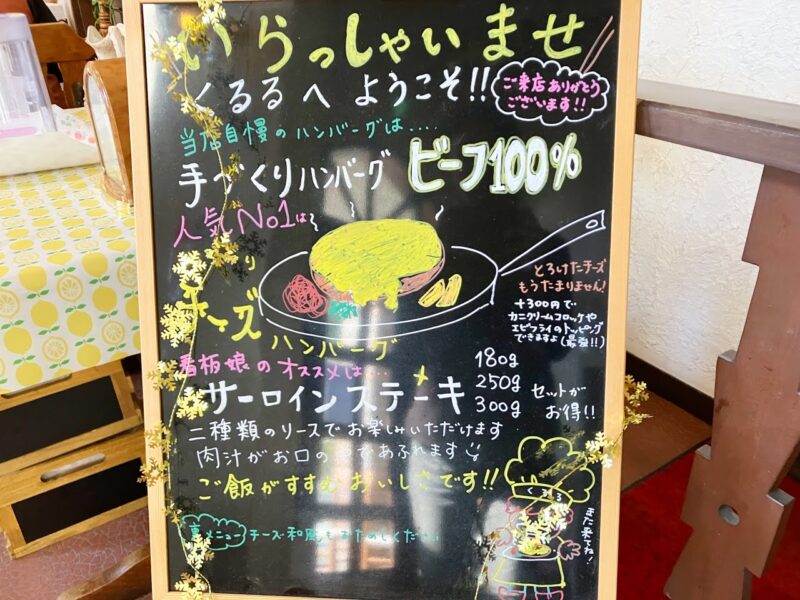 いらっしゃいませ
くるるへ ようこそ!!
ご来店ありがとう
ございます!!
当店自慢のハンバーグは....
手づくりハンバーグ ビーフ100%
人気No1は
とろけたチーズ
もうたまりません!
+300円で
カニクリームコロッケや
エビフライのトッピング
できますよ(最強!!)
チーズ
ハンバーグ
看板娘のオススメは...
サーロインステーキ
180g
250g
300g
セットが
お得!!
二種類のソースでお楽しみいただけます
肉汁がお口の中であふれます
ご飯がすすむおいしさです!!
裏メニュー チーズ和風もおたのしください
くるる
また来てね!